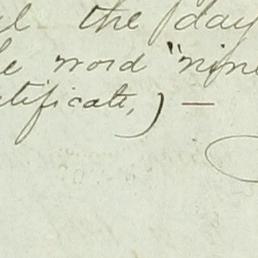 the day
word "nine
tificate,) —